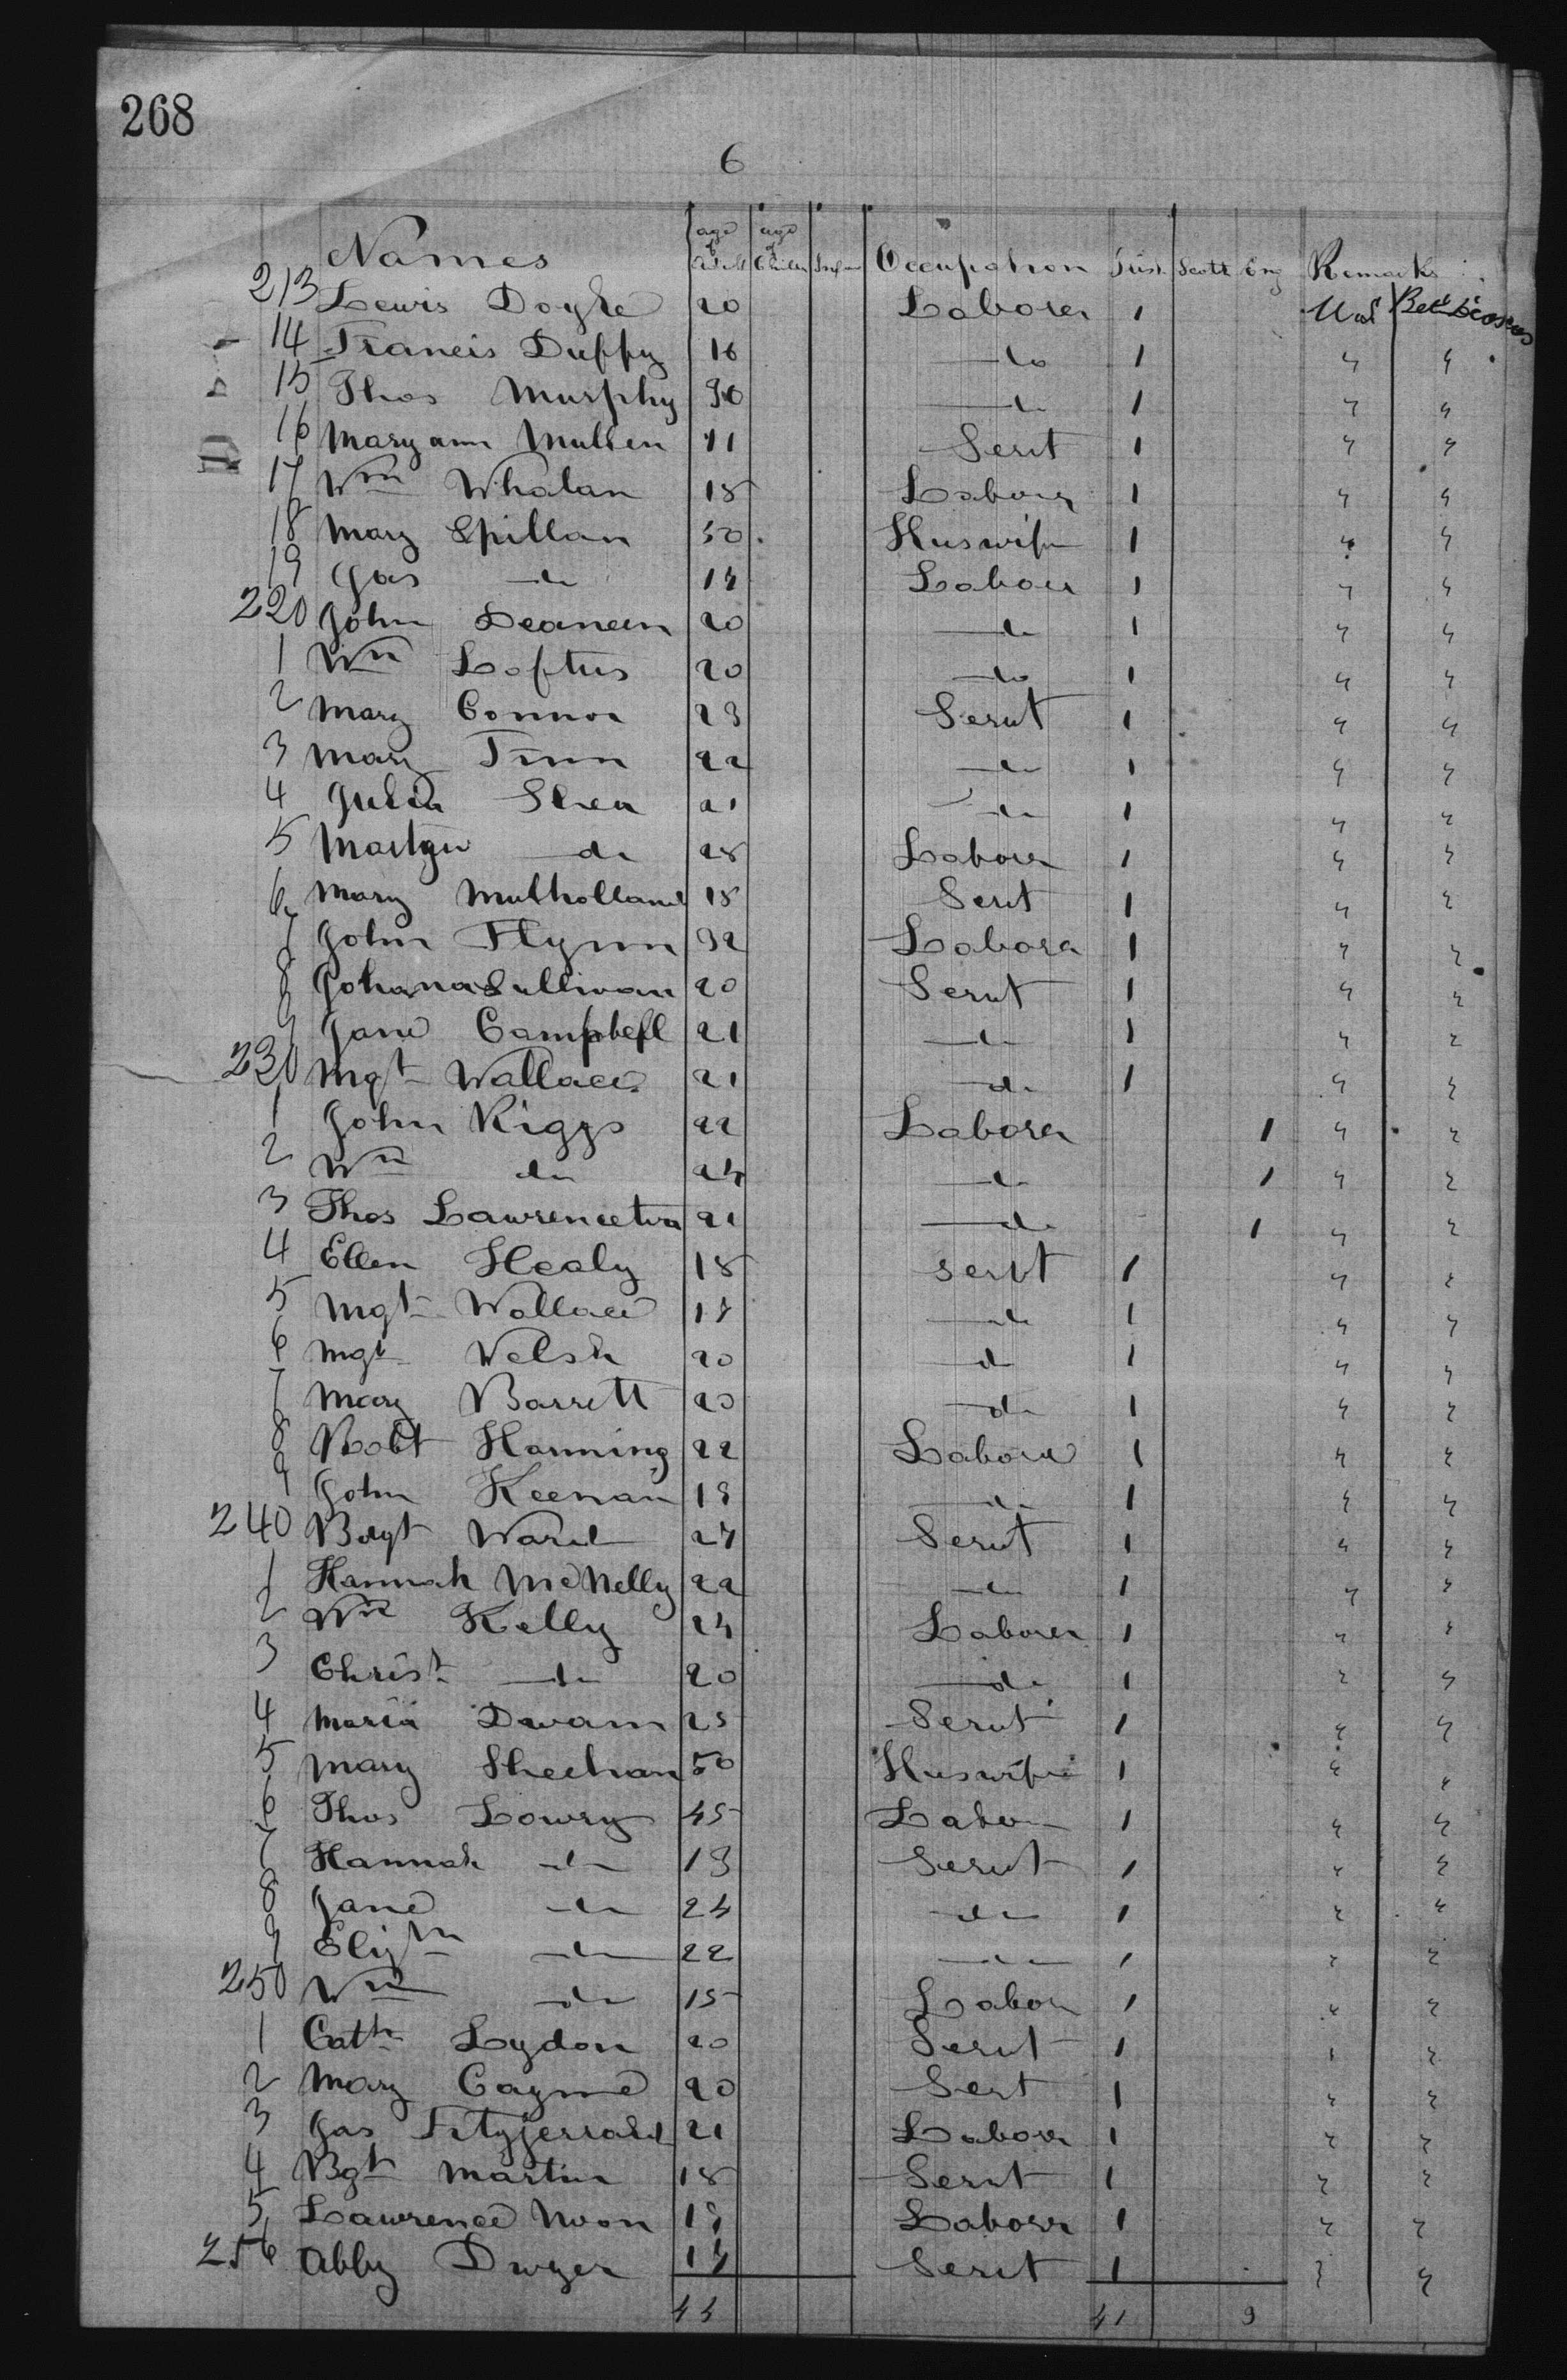 268
6
Names age of Adult age of Childn Infan Occupation Irish Scott Eng Remarks
213 Lewis Doyle 20 Laborer 1 U.S.
14 Francis Duffy 16 do 1 " "
15 Thos Murphy 30 do 1 " "
16 Maryann Mullen 41 Servt 1 " "
17 Wm Whalan 18 Laborer 1 " "
18 Mary Spillan 50 Huswife 1 " "
19 Jas do 14 Laborer 1 " "
220 John Deaneen 20 do 1 " "
1 Wm Loftus 20 do 1 " "
2 Mary Connor 23 Servt 1 " "
3 Mary Finn 22 do 1 " "
4 Julia Shea 21 do 1 " "
5 do 28 Laborer 1 " "
6 Mary Mulholland 18 Servt 1 " "
7 John Flynn 32 Laborer 1 " "
8 Johana Sullivan 20 Servt 1 " "
9 Jane Campbell 21 do 1 " "
230 Mgt Wallace 21 do 1 " "
1 John Riggs 22 Laborer 1 " "
2 Wm do 24 do 1 " "
3 Thos 21 do 1 " "
4 Ellen Healy 18 servt 1 " "
5 Mgt Wallace do 1 " "
6 Mgt Welsh 20 do 1 " "
7 Mary Barrett 20 do 1 " "
8 Robt Hanning 22 Laborer 1 " "
9 John Keenan 19 do 1 " "
240 Bdgt Ward 27 Servt 1 " "
1 Hannah McNelly 22 do 1 " "
2 Wm Kelly 24 Laborer 1 " "
3 Christ do 20 do 1 " "
4 Maria 25 Servt 1 " "
5 Mary Sheehan 50 Huswife 1 " "
6 Thos Lowry 45 Labor 1 " "
7 Hannah do 19 Servt 1 " "
8 Jane do 24 do 1 " "
9 Elizth do 22 do 1 " "
250 Wm do 15 Labor 1 " "
1 Cath Lydon 20 Servt 1 " "
2 Mary 20 Servt 1 " "
3 Jas Fitzjerrald 21 Laborr 1 " "
4 Bgt Martin 18 Servt 1 " "
5 Lawrence Noon 19 Laborer 1 " "
256 Abby Dwyer Servt 1 " "
44 41 3